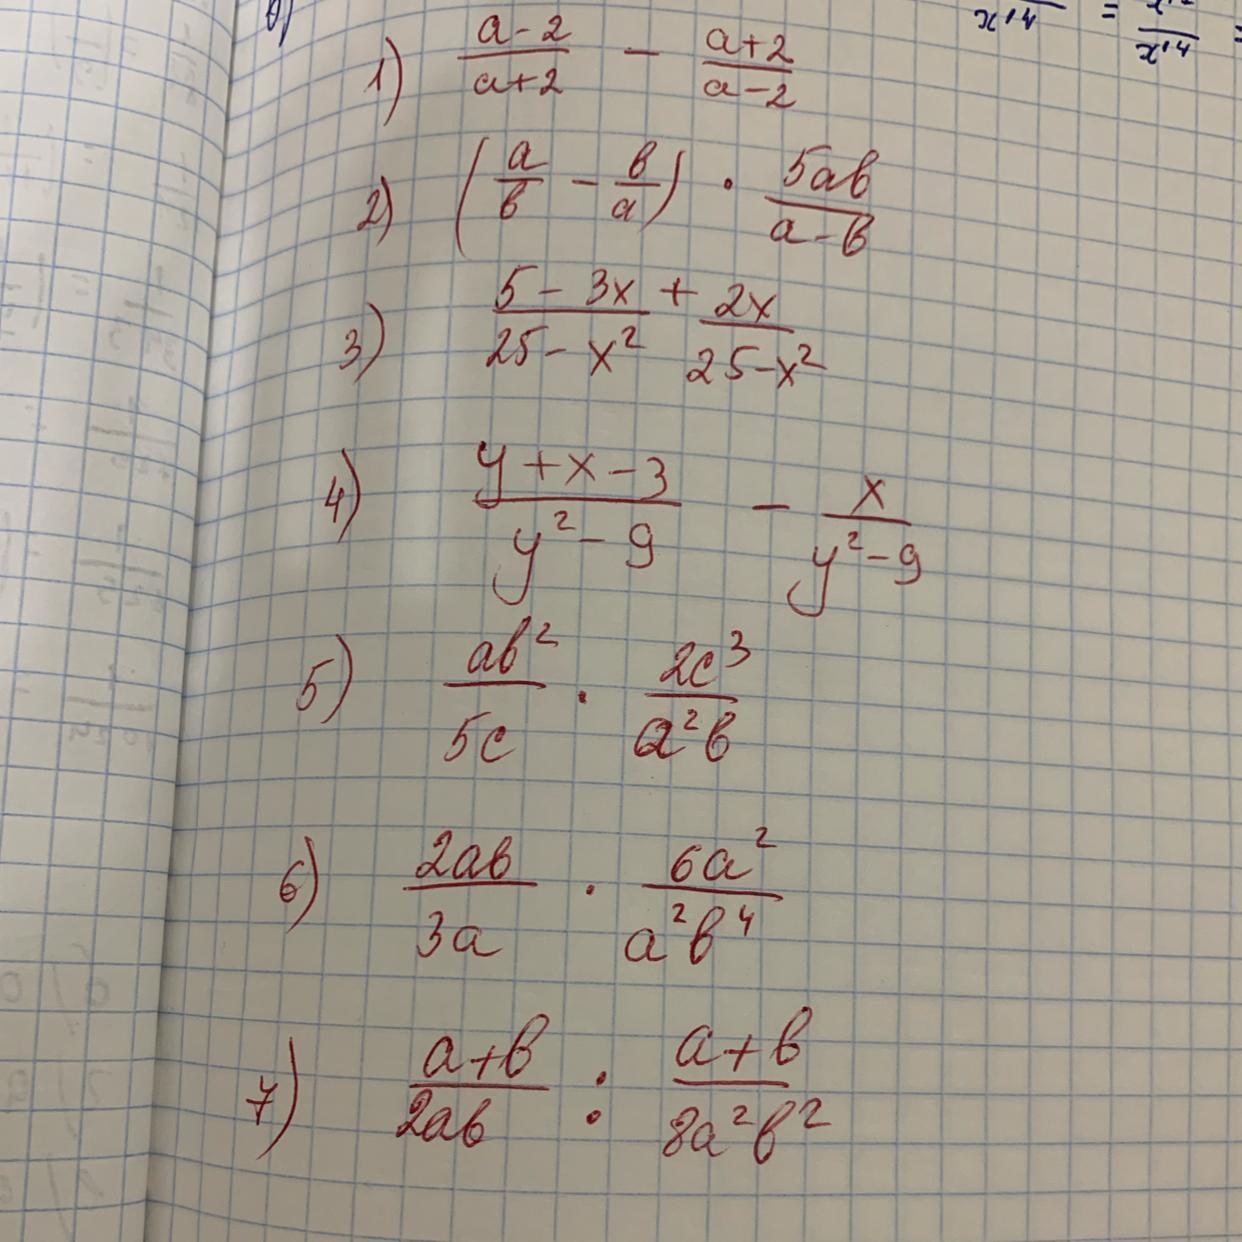 1) \frac{a-2}{a+2} - \frac{a+2}{a-2}
2) (\frac{a}{b} - \frac{b}{a}) · \frac{5ab}{a-b}
3) \frac{5-3x}{25-x^2} + \frac{2x}{25-x^2}
4) \frac{y+x-3}{y^2-9} - \frac{x}{y^2-9}
5) \frac{ab^2}{5c} · \frac{2c^3}{a^2b}
6) \frac{2ab}{3a} · \frac{6a^2}{a^2b^4}
7) \frac{a+b}{2ab} : \frac{a+b}{8a^2b^2}